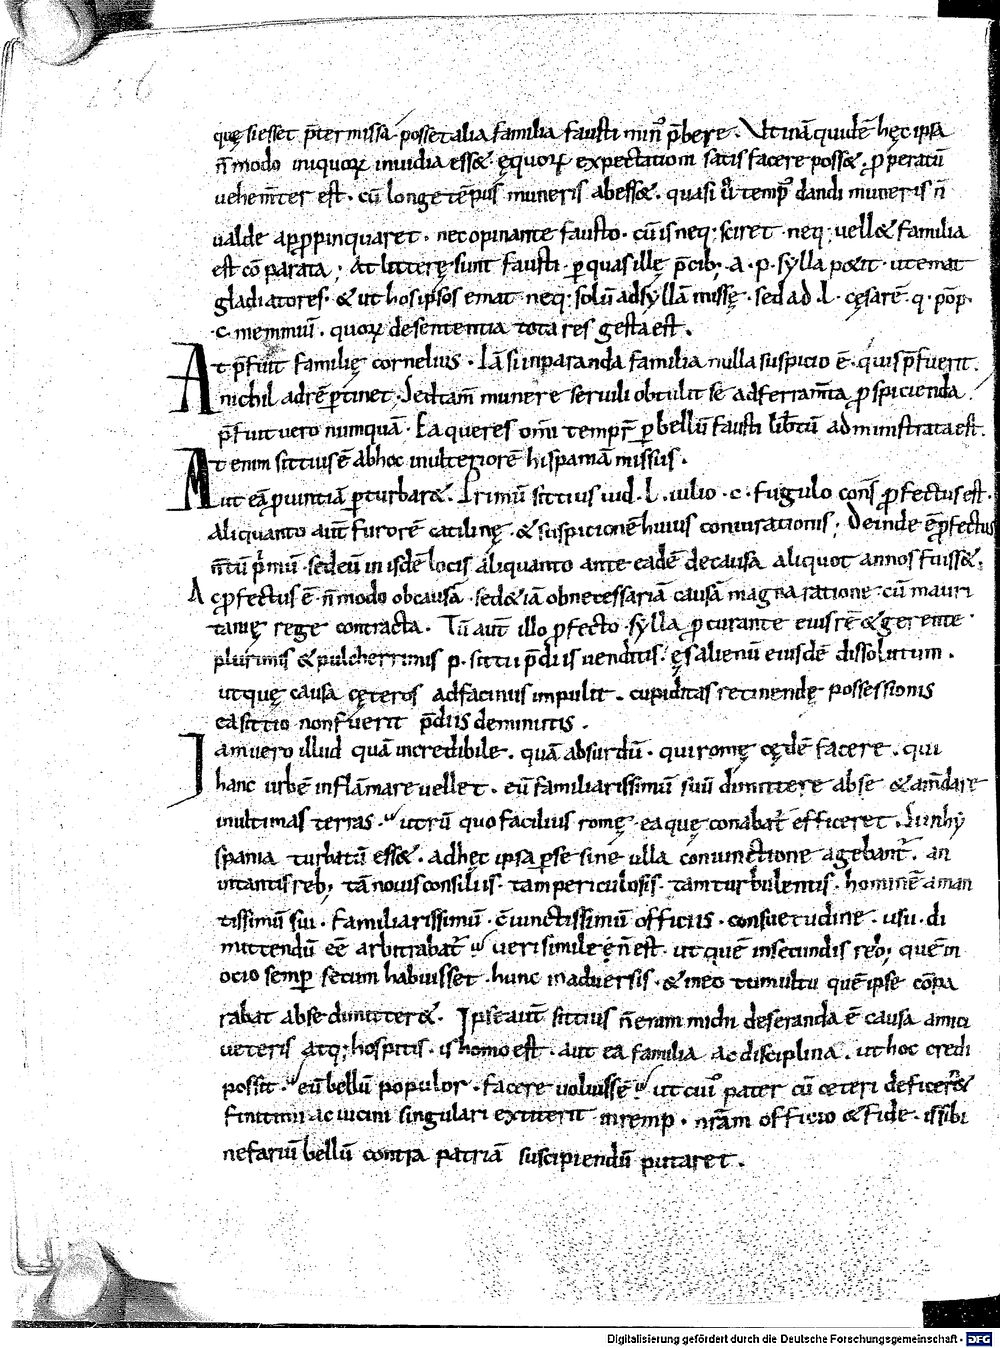 quę si esset p̄termissa possetalia familia fausti min᷒ p̄bere. Utinā quidē hęc ipsa
n̄ modo iniquoꝝ inuidia ess& ęquoꝝ expectationi satisfacere poss&. ꝓperatū
uehem̄ter est. cū longe tēpus muneris abess&. quasi ū temp᷒ dandi muneris n̄
ualde apꝓpinquaret. nec opinante fausto. cū is neq; sciret neq; uell& familia
est cōparata; At litterę sunt fausti. ꝑ quas ille p̄cib; a. p. sylla p&it. ut emat
gladiatores. & ut hos ipsos emat neq; solū ad syllā missę. sed ad. l. cęsarē. q. pōp.
.c. memmiū. quoꝝ de sententia tota res gesta est.
At p̄fuit familię cornelius. Iā si in paranda familia nulla suspicio ē. quis p̄fuerit.
nichil ad rē ꝑtinet. Sed tam̄ munere seruili obtulit se ad ferram̄ta ꝓspicienda.
p̄fuit uero numquā. Ea queres om̄i tempr̄ ꝑ bellū fausti lib̄tū administrata est.
At enim sittius ē ab hoc in ulteriorē hispaniā missus.
Ut eā ꝓuintiā ꝑturbar&. Primū sittius iud. l. iulio. c. fugulo cons̄ ꝓfectus est.
Aliquanto aut̄ furorē catilinę. & suspicionē huius coniurationis; Deinde ē ꝓfectus
n̄ tū p̄mū. sed cū in isdē locis aliquanto ante eadē de causa aliquot annos fuiss&.
Ac ꝓfectus ē. n̄ modo ob causā. sed & iā ob necessariā causā magna ratione cū mauri
tanię rege contracta. Tū aut̄ illo ꝓfecto. sylla ꝓcurante eius rē & gerente
plurimis & pulcherrimis p. sittii p̄diis uenditis. ęs alienū eiusdē dissolutum.
ut quę causa cęteros ad facinus impulit. cupiditas retinendę possessionis
ea sittio non fuerit p̄diis deminutis.
Iam uero illud quā incredibile. quā absurdū. qui romę cędē facere. qui
hanc urbē inflāmare uellet. eū familiarissimū suū dimittere abse & am̄dare
in ultimas terras. utrū quo facilius romę ea quę conabat᷑ efficeret. Si in hy
spania turbatū ess&. ad hęc ipsa ꝑ se sine ulla coniunctione agebant᷑. an
in tantis reb; tā nouis consiliis. tam periculosis. tam turbulentis. hominē aman
tissimū sui. familiarissimū. c̄iunctissimū officiis. consuetudine. usu. di
mittendū eē arbitrabat᷑. ueri simile n̄ est. ut quē in secundis reb; quē in
ocio semꝑ secum habuisset. hunc in aduersis. & in eo tumultu quē ipse cōpa
rabat abse dimitter&. Ipse aut̄ sittius n̄ enim mihi deseranda ē causa amici
ueteris atq; hospitis. is homo est. aut ea familia ac disciplina. ut hoc credi
possit. eū bellū populor. facere uoluisse. ut cui᷒ pater cū ceteri deficer&
finitimi ac uicini singulari extiterit in remp. nr̄am officio & fide. is sibi
nefariū bellū contra patriā suscipiendū putaret.
Digitalisierung gefördert durch die Deutsche Forschungsgemeinschaft - DFG